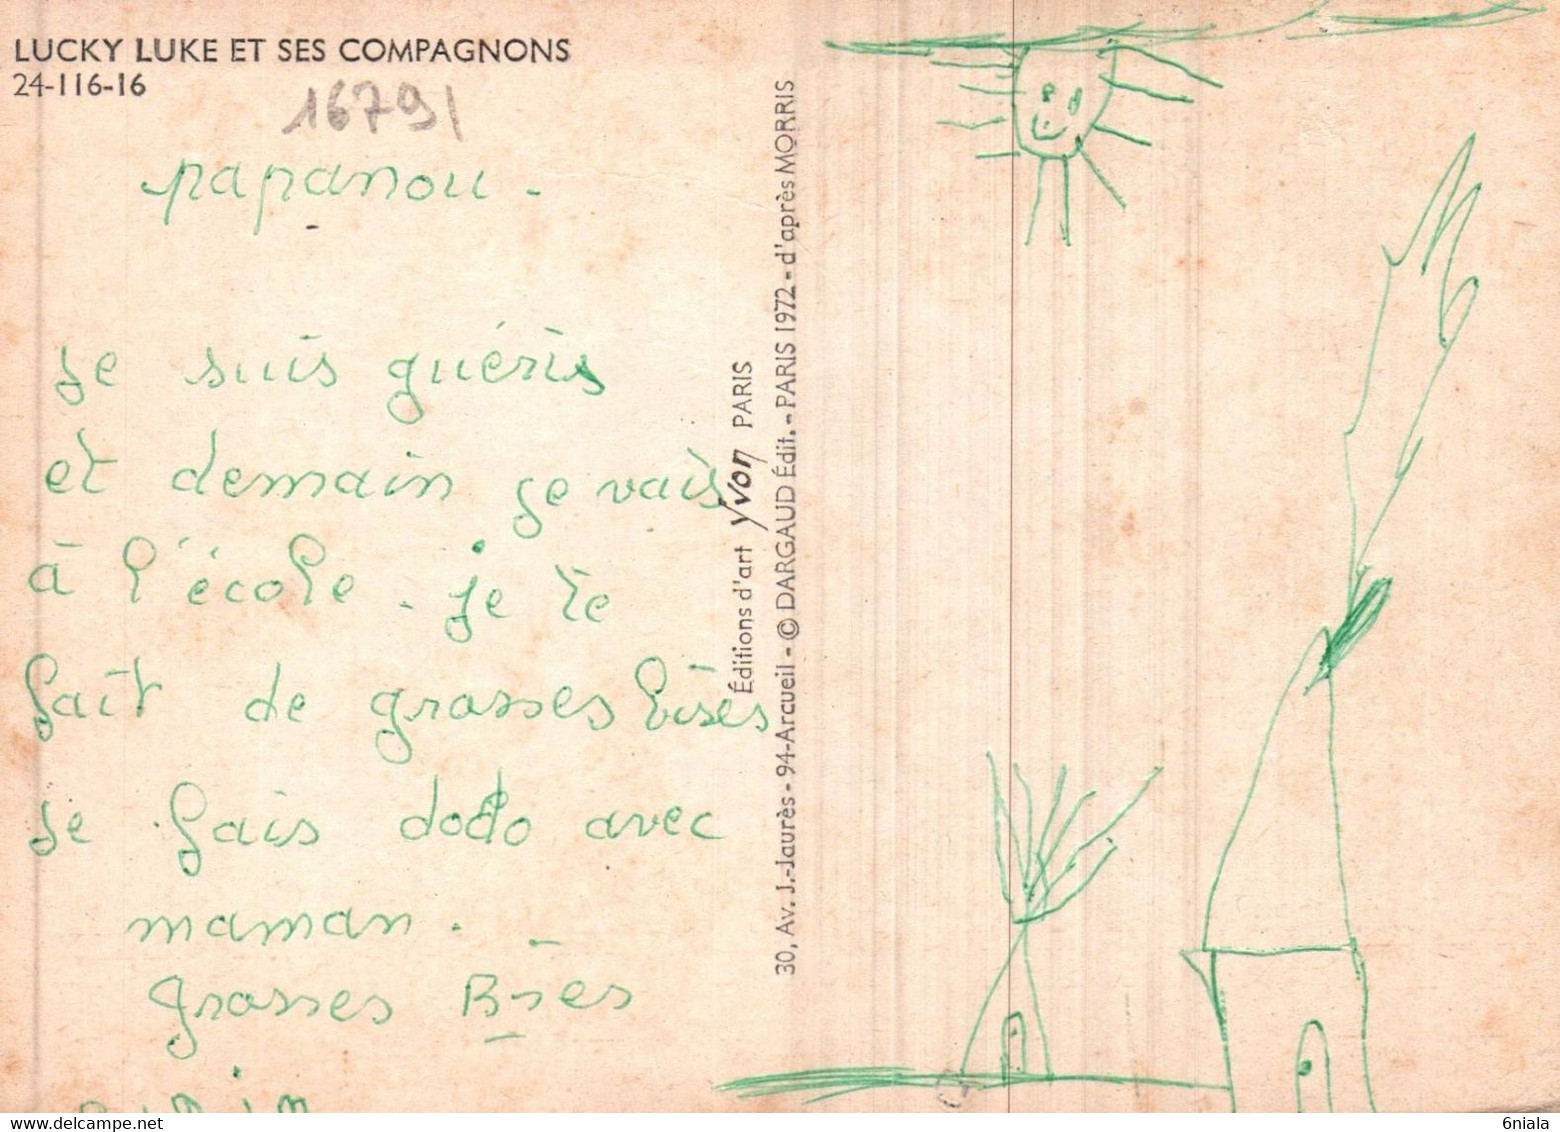 LUCKY LUKE ET SES COMPAGNONS
24-116-16
16791
papanou.
je suis guéris
et demain je vais
à l'école. je te
fait de grosses bises
je fais dodo avec
maman.
grosses Bises
Éditions d'art yvon PARIS
30, Av. J.-Jaurès - 94-Arcueil - © DARGAUD Édit. - PARIS 1972 - d'après MORRIS
delcampe.net
6niala